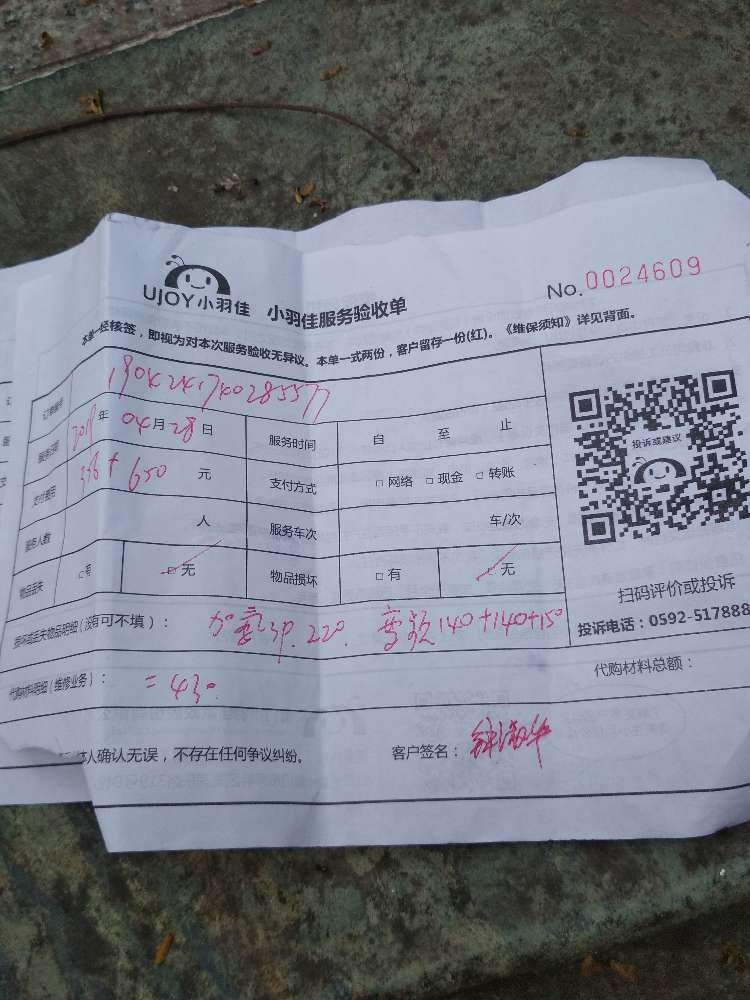 UJOY小羽佳 小羽佳服务验收单 No.0024609
本单一经核签，即视为对本次服务验收无异议。本单一式两份，客户留存一份(红)。《维保须知》详见背面。
190424174028557
2019年04月28日 服务时间 自 至 止
支付费用 336+650元 支付方式 □网络 □现金 □转账
服务人数 人 服务车次 车/次
物品丢失 □有 □无 物品损坏 □有 □无
损坏或丢失物品明细（没有可不填）： 加氟 220. 140+140+150
代购材料明细（维修业务）： =430. 代购材料总额：
人确认无误，不存在任何争议纠纷。 客户签名：
投诉或建议
扫码评价或投诉
投诉电话：0592-517888